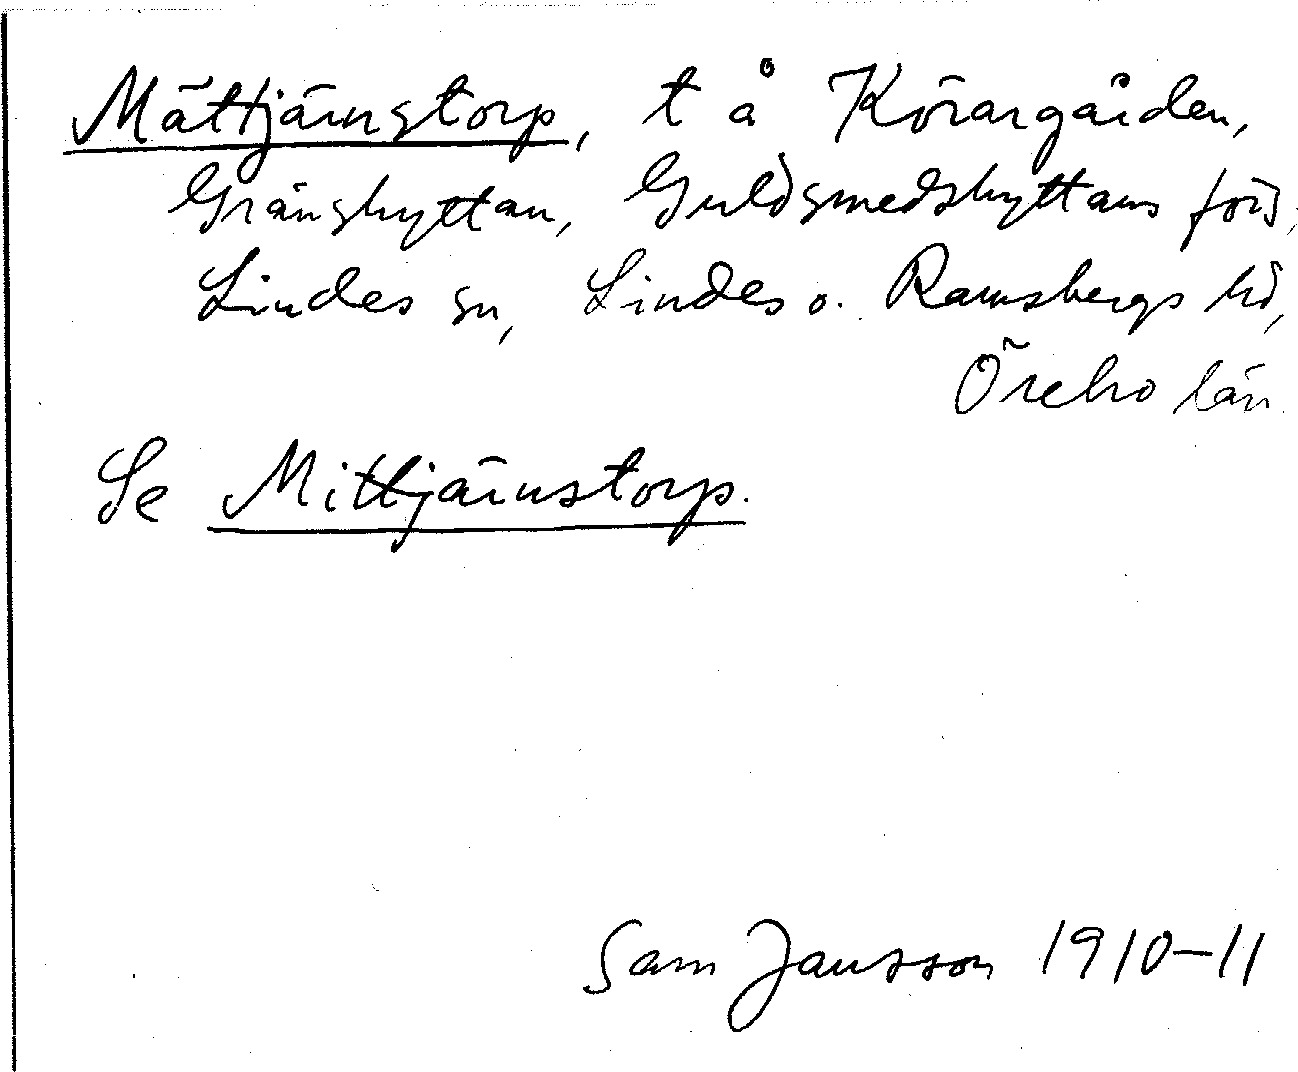 Mättjärnstorp, t å Körargården,
Grönshyttan, Guldsmedshyttans förs,
Lindes sn, Lindes o. Ramsbergs hd,
Örebro län
Se Mittjärnstorp.
Sam Jansson 1910-11